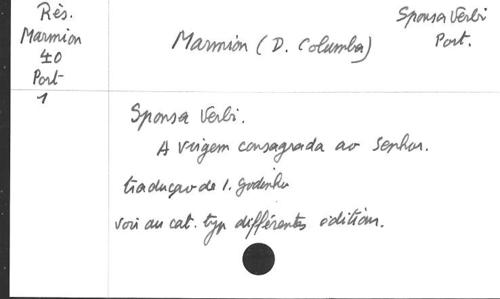 Rès.
Marmion
40
Port
1
Marmion (D. Columba)
Sponsa Verbi
Port.
Sponsa Verbi.
A virgem consagrada ao Senhor.
traduçao de I. Godinho
voir au cat. typ différentes editions.